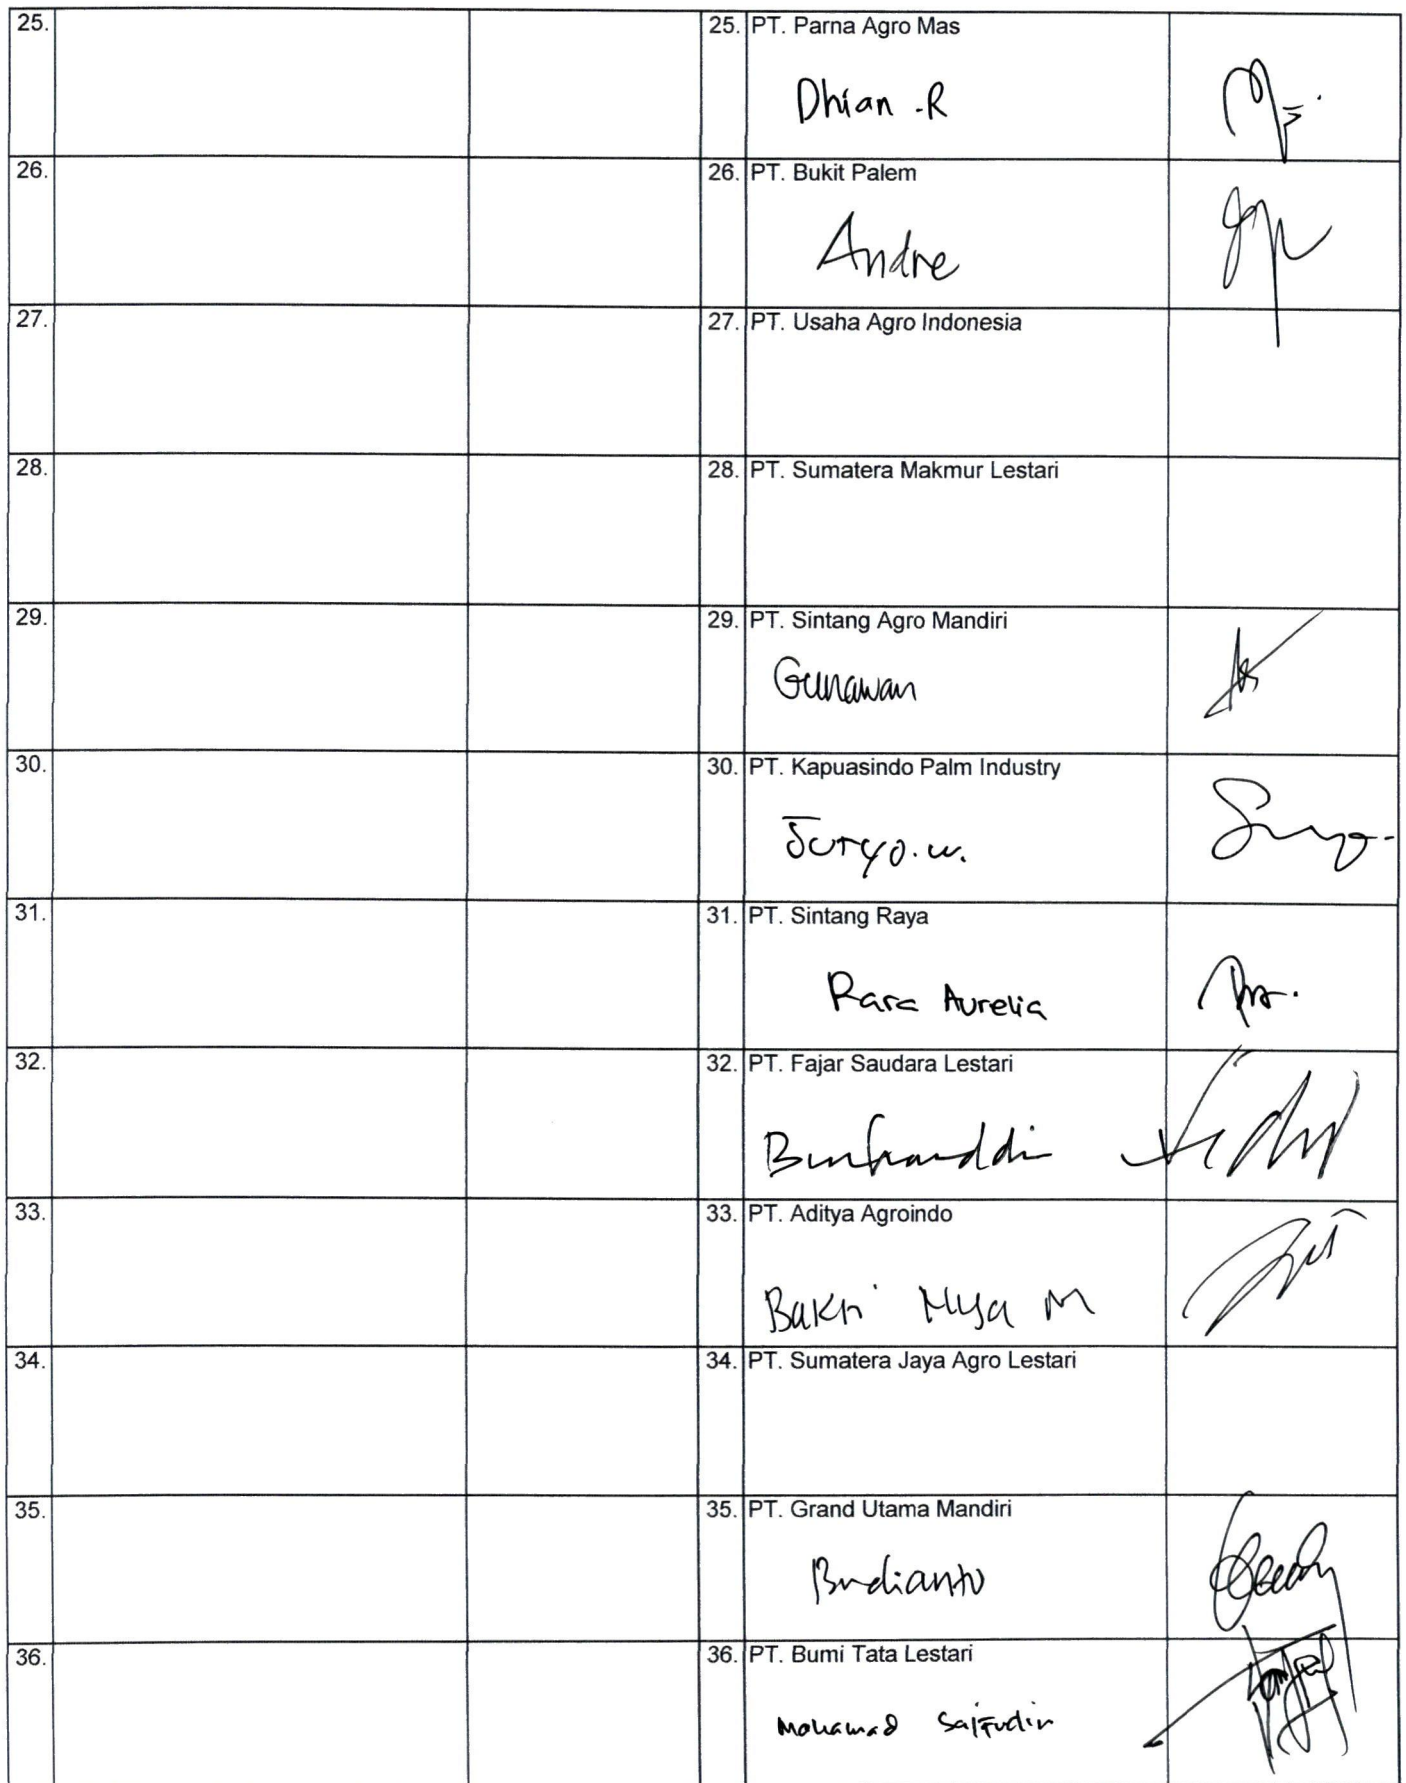 25. 25. PT. Parna Agro Mas
Dhian .R
26. 26. PT. Bukit Palem
Andre
27. 27. PT. Usaha Agro Indonesia
28. 28. PT. Sumatera Makmur Lestari
29. 29. PT. Sintang Agro Mandiri
Gunawan
30. 30. PT. Kapuasindo Palm Industry
Suryo.w.
31. 31. PT. Sintang Raya
Rara Aurelia
32. 32. PT. Fajar Saudara Lestari
33. 33. PT. Aditya Agroindo
Bakti M
34. 34. PT. Sumatera Jaya Agro Lestari
35. 35. PT. Grand Utama Mandiri
Budianto
36. 36. PT. Bumi Tata Lestari
Mohamad Saifudin